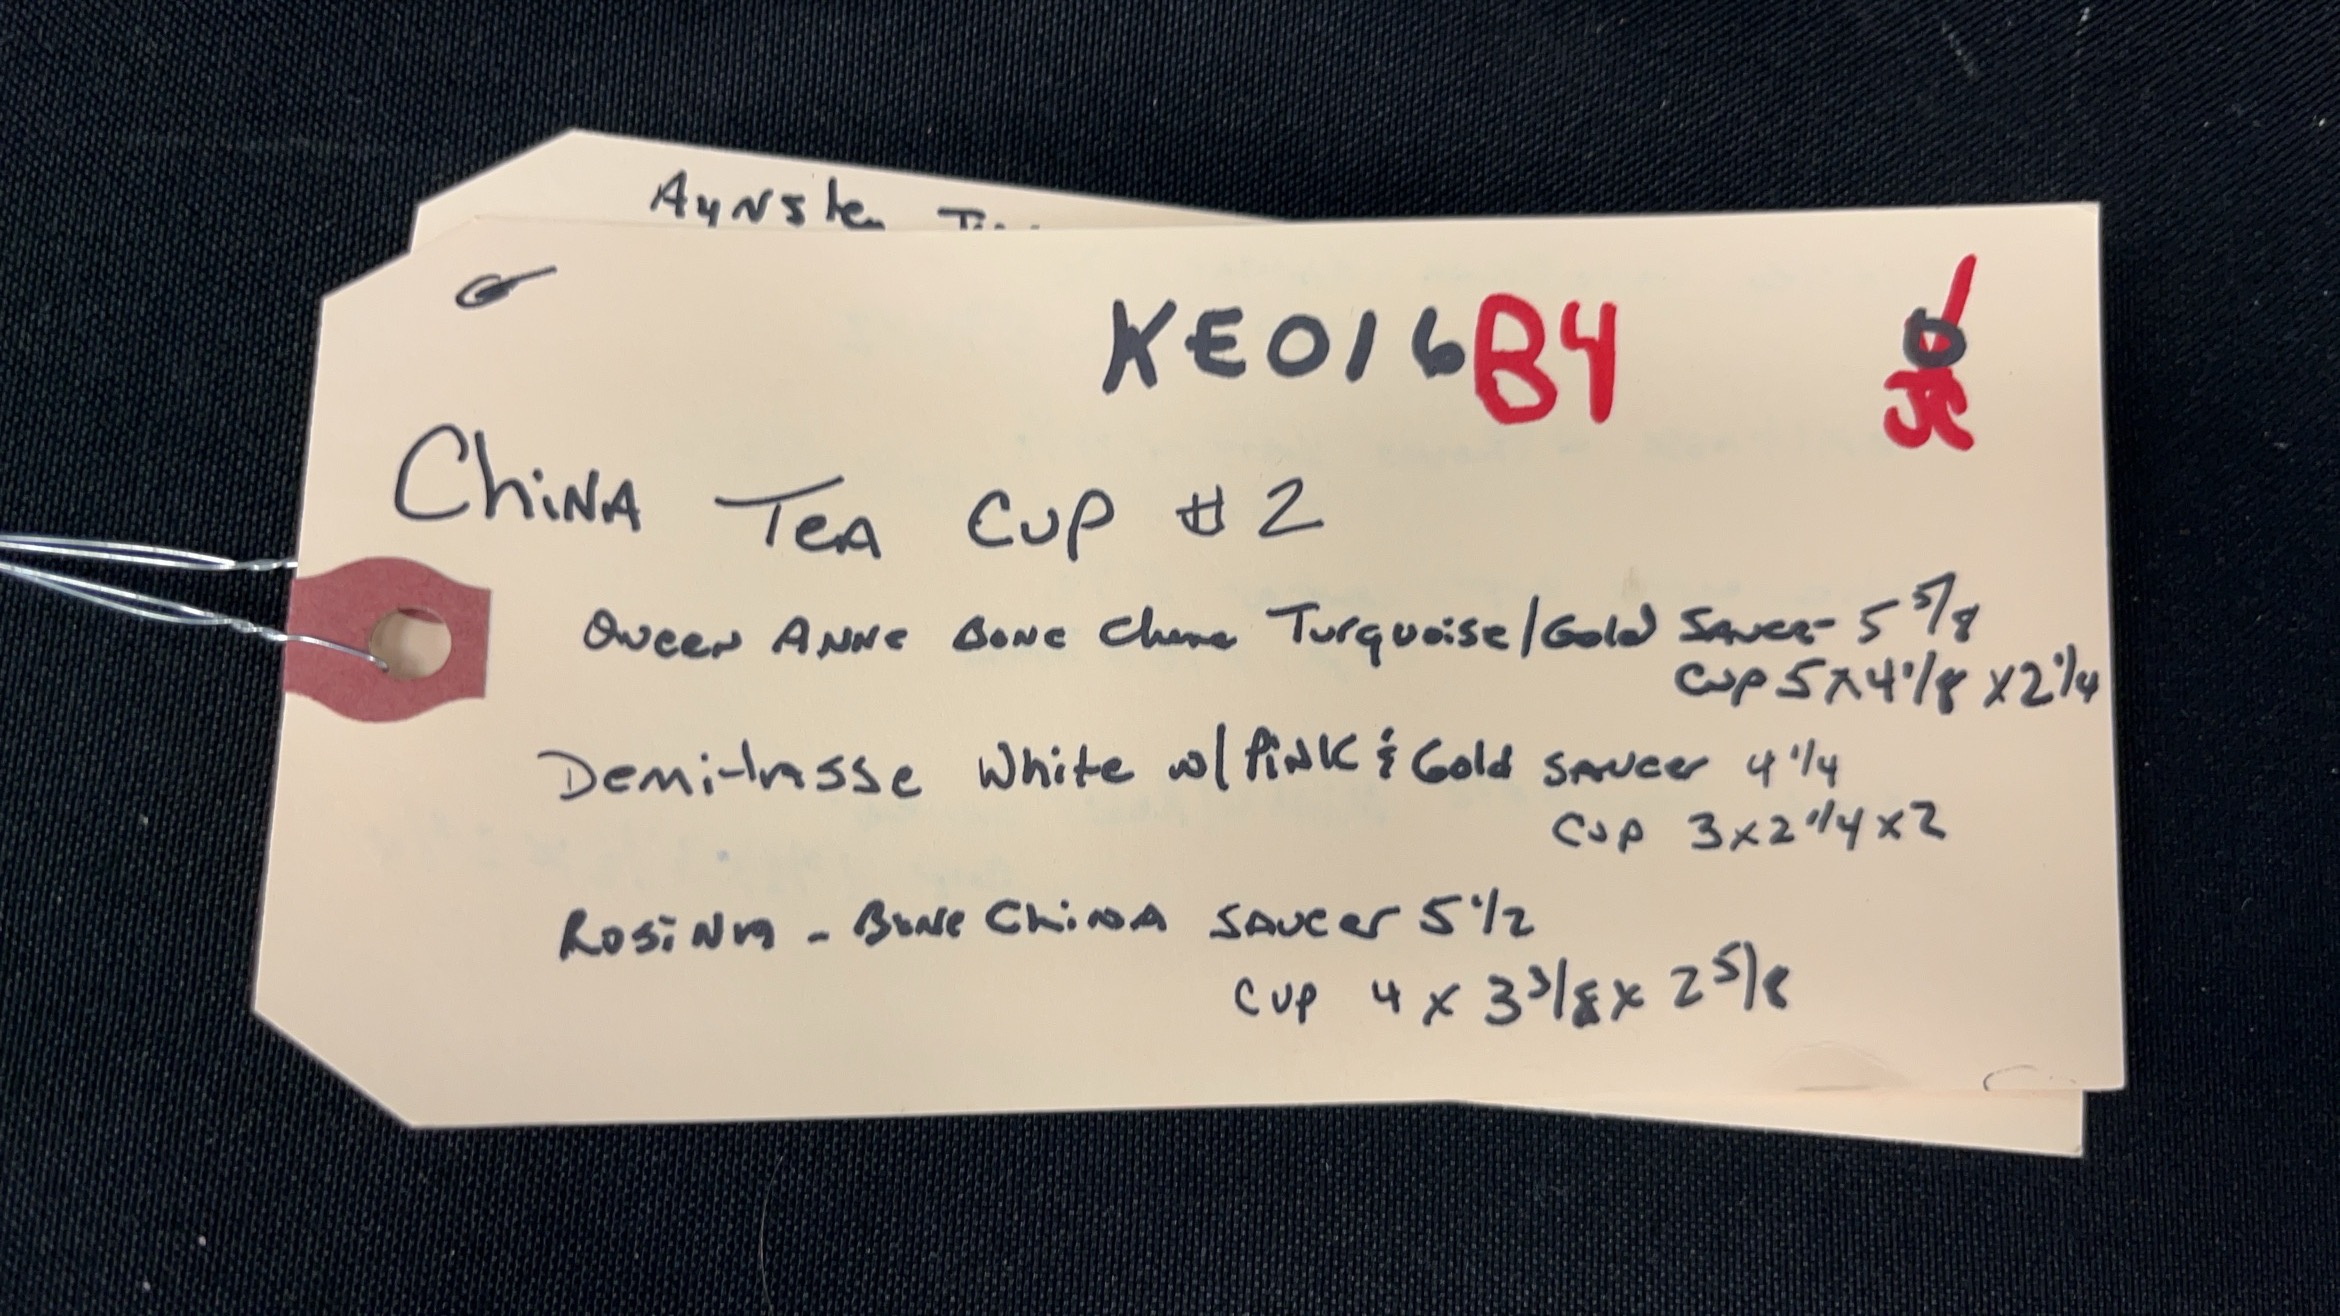 Aynsley
KE016B4
JC
China Tea Cup #2
Queen Anne Bone China Turquoise/Gold Saucer 5 5/8
Cup 5x4 1/8 x2 1/4
Demi-tasse White w/ Pink & Gold Saucer 4 1/4
Cup 3x2 1/4x2
Rosina - Bone China Saucer 5 1/2
Cup 4 x 3 3/8 x 2 5/8